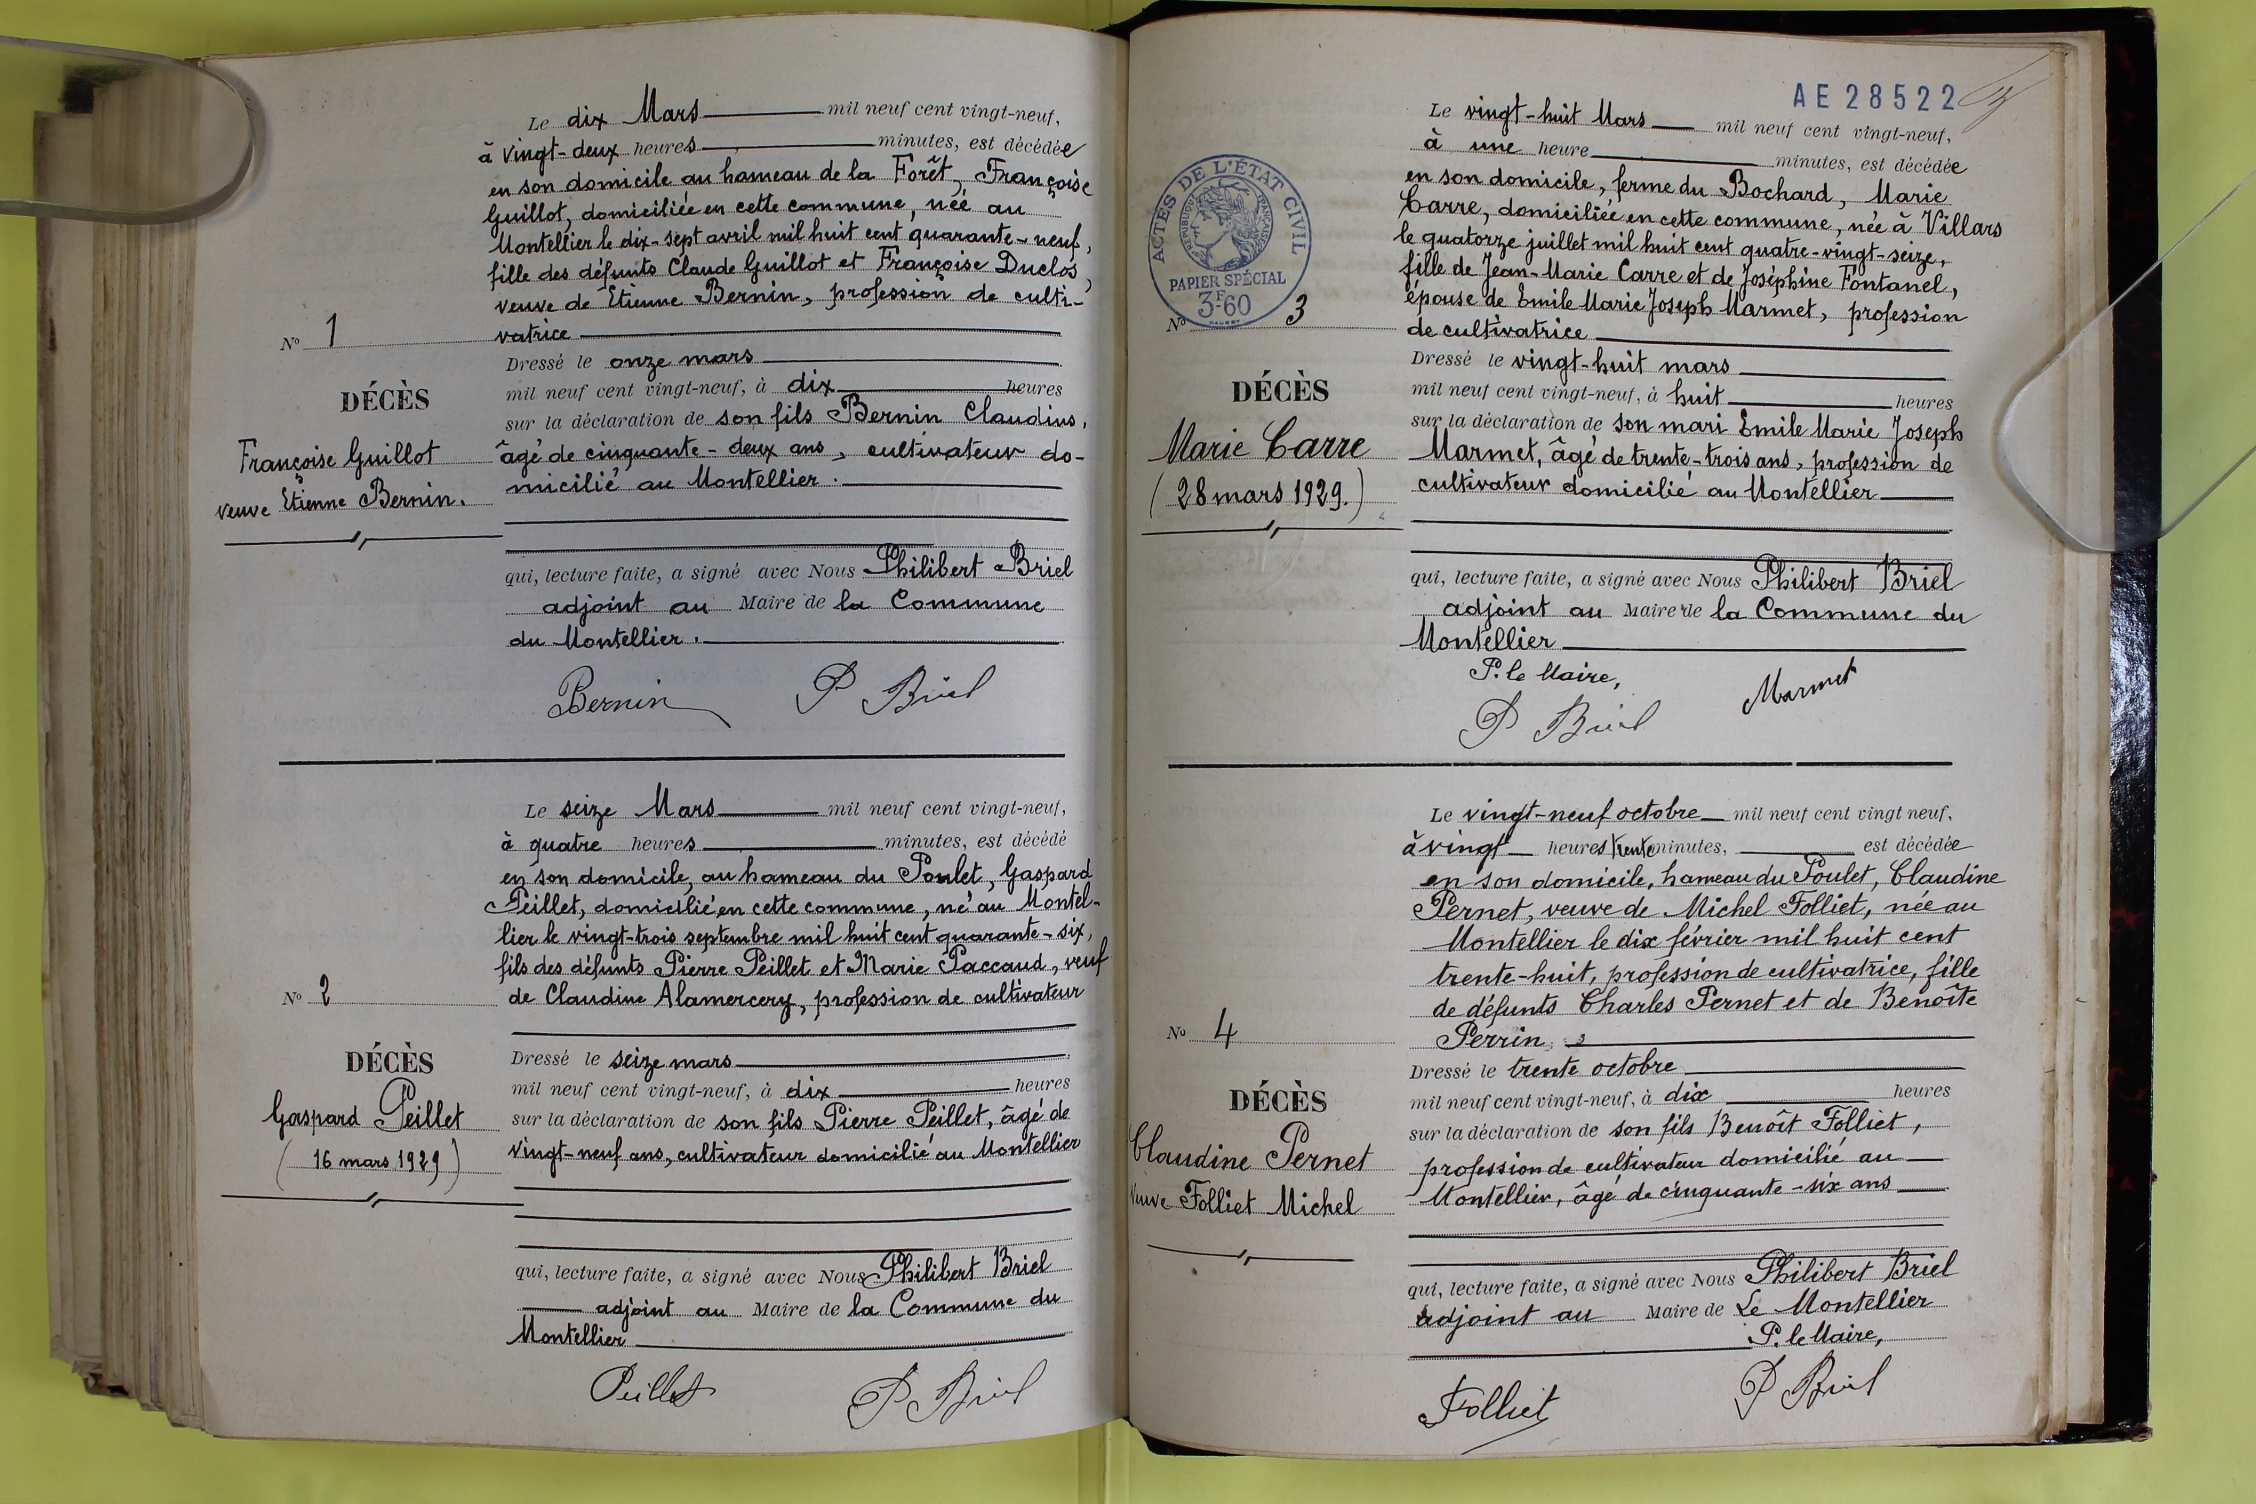 Le dix Mars mil neuf cent vingt-neuf,
à vingt-deux heures minutes, est décédée
en son domicile au hameau de la Forêt, Françoise
Guillot, domiciliée en cette commune, née au
Montellier le dix-sept avril mil huit cent quarante-neuf,
fille des défunts Claude Guillot et Françoise Duclos,
veuve de Etienne Bernin, profession de culti-
vatrice
No 1
DÉCÈS
Françoise Guillot
veuve Etienne Bernin.
Dressé le onze mars
mil neuf cent vingt-neuf, à dix heures
sur la déclaration de son fils Bernin Claudius,
âgé de cinquante-deux ans, cultivateur do-
micilié au Montellier.
qui, lecture faite, a signé avec Nous Philibert Briel
adjoint au Maire de la Commune
du Montellier.
Bernin P Briel
Le seize Mars mil neuf cent vingt-neuf,
à quatre heures minutes, est décédé
en son domicile, au hameau du Poulet, Gaspard
Peillet, domicilié en cette commune, né au Montel-
lier le vingt-trois septembre mil huit cent quarante-six,
fils des défunts Pierre Peillet et Marie Paccaud, veuf
de Claudine Alamercery, profession de cultivateur
No 2
DÉCÈS
Gaspard Peillet
(16 mars 1929)
Dressé le seize mars
mil neuf cent vingt-neuf, à dix heures
sur la déclaration de son fils Pierre Peillet, âgé de
vingt-neuf ans, cultivateur domicilié au Montellier
qui, lecture faite, a signé avec Nous Philibert Briel
adjoint au Maire de la Commune du
Montellier
Peillet P Briel
AE 28522
ACTES DE L'ÉTAT CIVIL
RÉPUBLIQUE FRANÇAISE
PAPIER SPÉCIAL
3F60
Le vingt-huit Mars mil neuf cent vingt-neuf,
à une heure minutes, est décédée
en son domicile, ferme du Bochard, Marie
Carre, domiciliée en cette commune, née à Villars
le quatorze juillet mil huit cent quatre-vingt-seize,
fille de Jean-Marie Carre et de Joséphine Fontanel,
épouse de Emile Marie Joseph Marmet, profession
de cultivatrice
No 3
DÉCÈS
Marie Carre
(28 mars 1929.)
Dressé le vingt-huit mars
mil neuf cent vingt-neuf, à huit heures
sur la déclaration de son mari Emile Marie Joseph
Marmet, âgé de trente-trois ans, profession de
cultivateur domicilié au Montellier
qui, lecture faite, a signé avec Nous Philibert Briel
adjoint au Maire de la Commune du
Montellier
P. le Maire,
P Briel Marmet
Le vingt-neuf octobre mil neuf cent vingt neuf,
à vingt heures trente minutes, est décédée
en son domicile, hameau du Poulet, Claudine
Pernet, veuve de Michel Folliet, née au
Montellier le dix février mil huit cent
trente-huit, profession de cultivatrice, fille
de défunts Charles Pernet et de Benoîte
Perrin
No 4
DÉCÈS
Claudine Pernet
Veuve Folliet Michel
Dressé le trente octobre
mil neuf cent vingt-neuf, à dix heures
sur la déclaration de son fils Benoît Folliet,
profession de cultivateur domicilié au
Montellier, âgé de cinquante-six ans
qui, lecture faite, a signé avec Nous Philibert Briel
adjoint au Maire de Le Montellier
P. le Maire,
Folliet P Briel